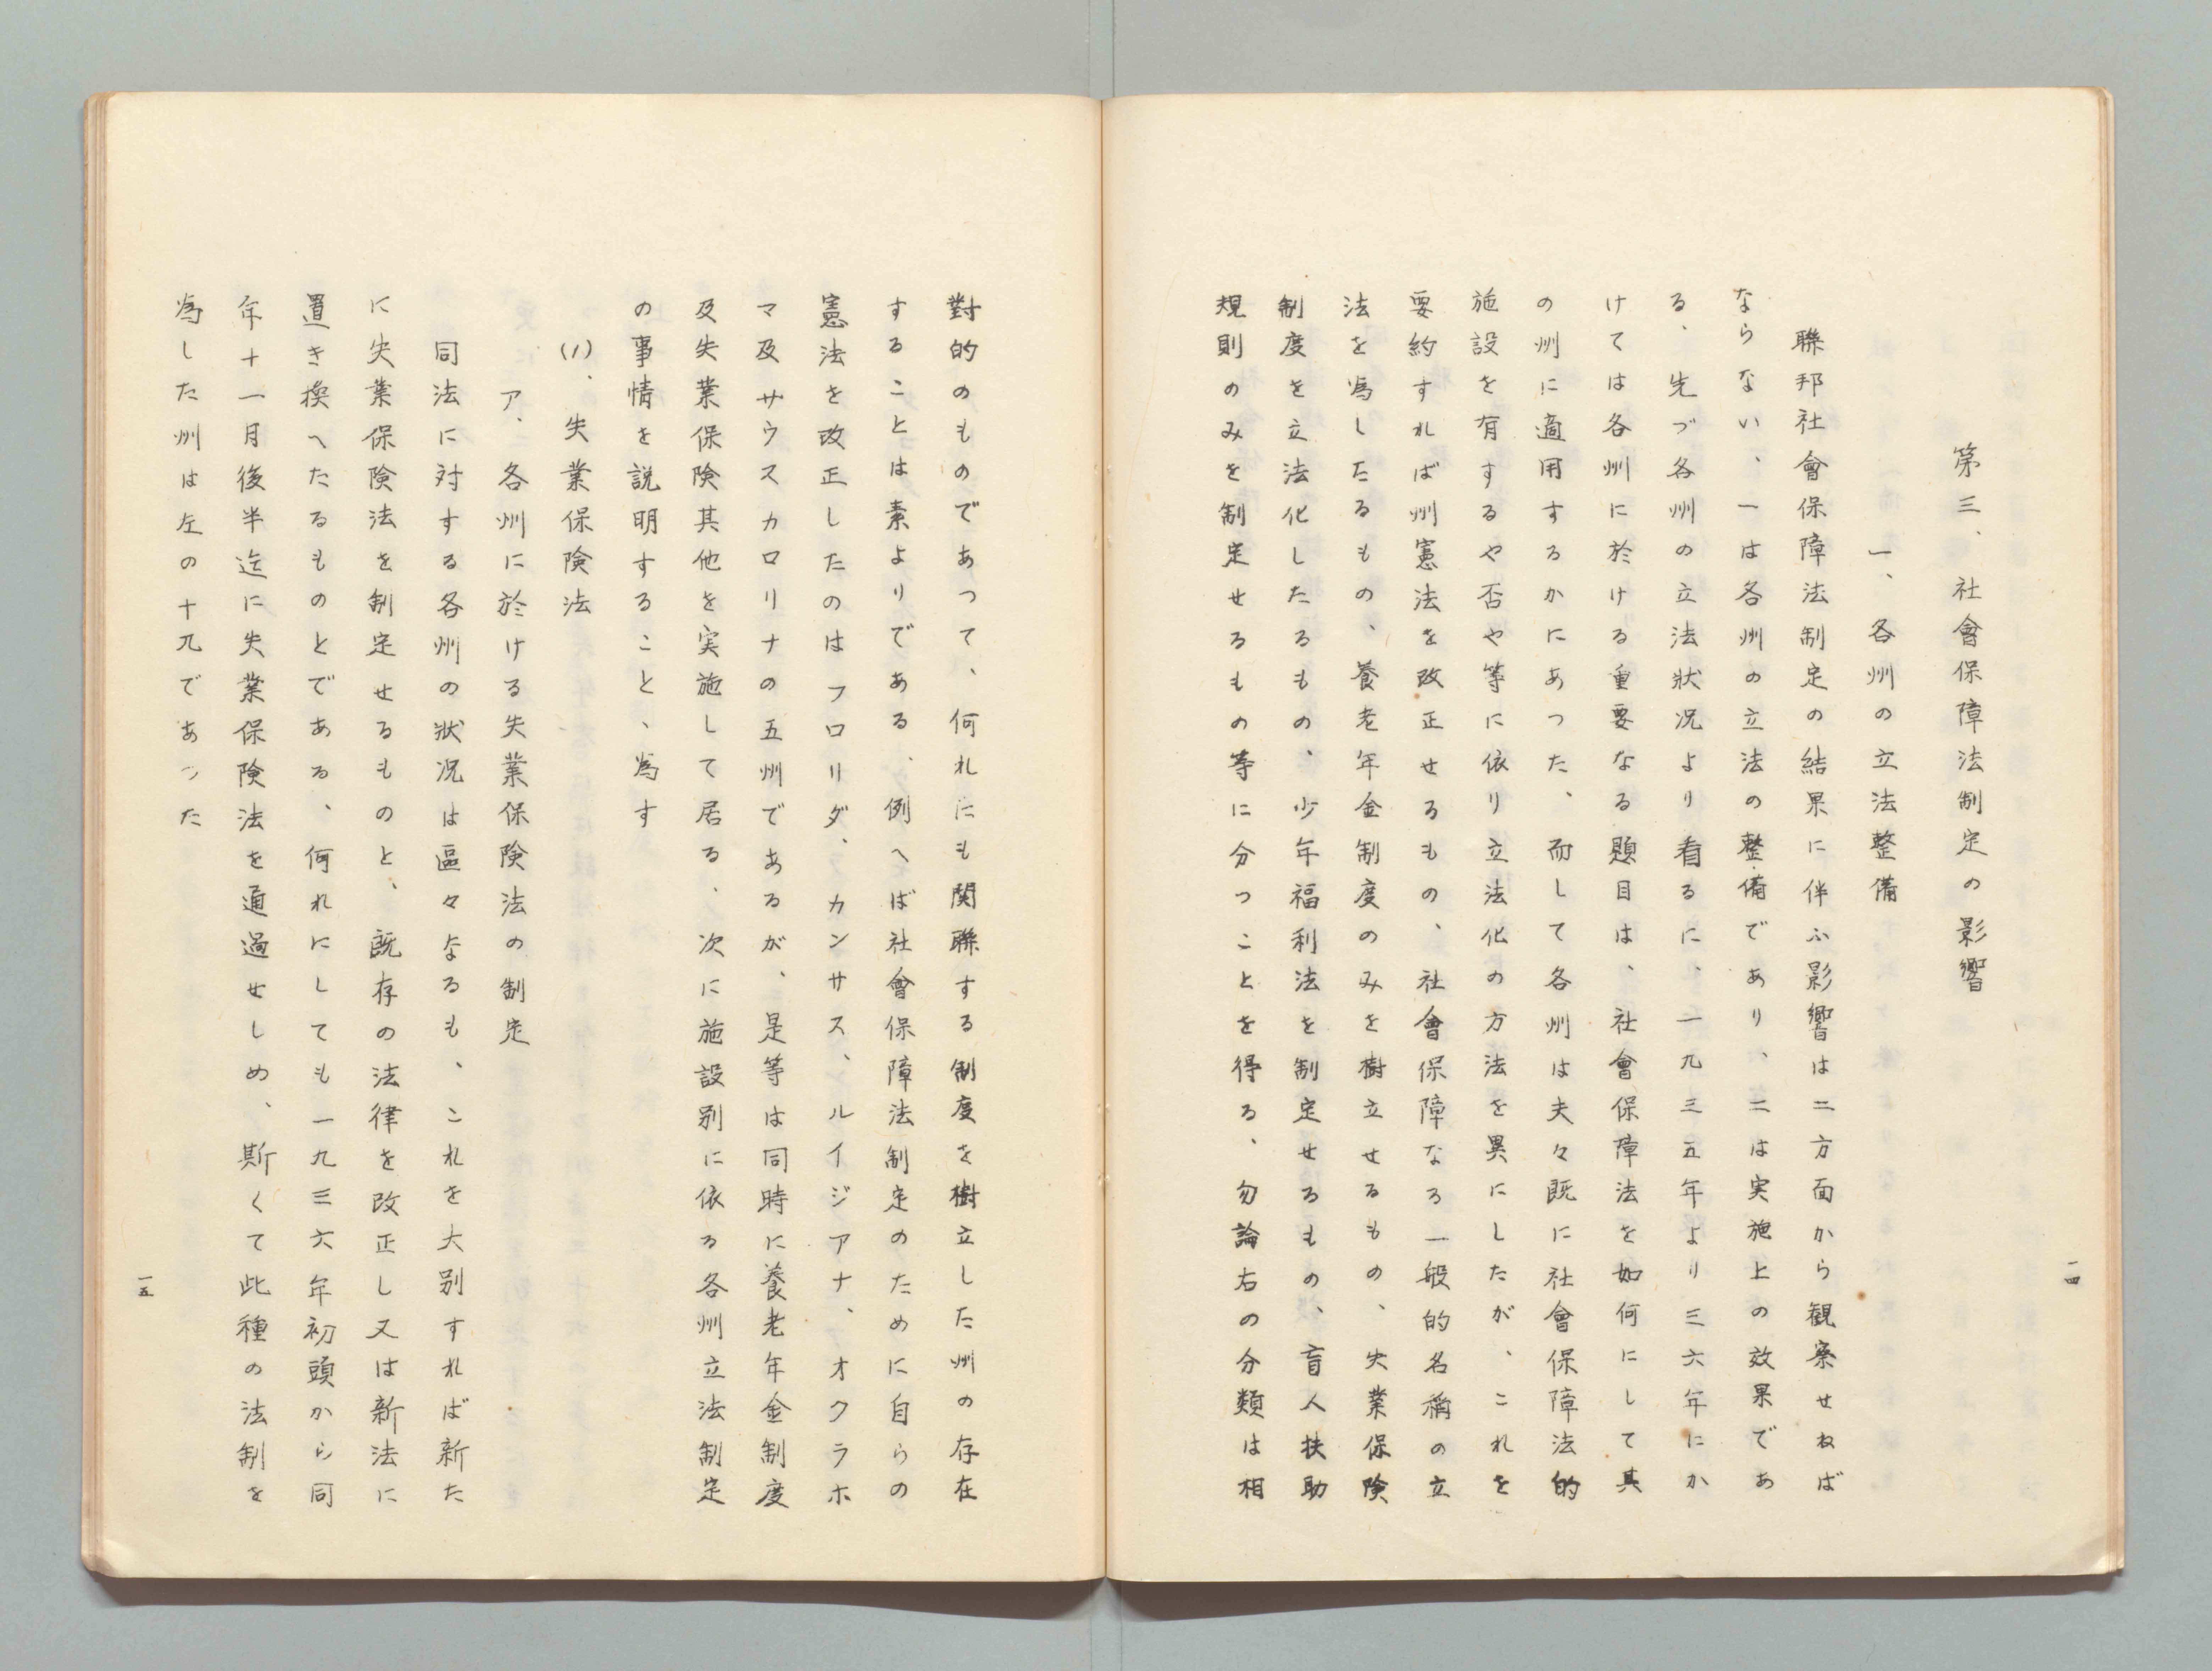 第三、社會保障法制定の影響
一、各州の立法整備
聯邦社會保障法制定の結果に伴ふ影響は二方面から観察せねば
ならない、一は各州の立法の整備であり、二は実施上の效果であ
る、先づ各州の立法狀況より看るに、一九三五年より三六年にか
けては各州に於ける重要なる題目は、社會保障法を如何にして其
の州に適用するかにあつた、而して各州は夫々既に社會保障法的
施設を有するや否や等に依り立法化の方法を異にしたが、これを
要約すれば州憲法を改正せるもの、社會保障なる一般的名稱の立
法を爲したるもの、養老年金制度のみを樹立せるもの、失業保険
制度を立法化したるもの、少年福利法を制定せるもの、盲人扶助
規則のみを制定せるもの等に分つことを得る、勿論右の分類は相
一四
對的のものであつて、何れにも関聯する制度を樹立した州の存在
することは素よりである、例へば社會保障法制定のために自らの
憲法を改正したのはフロリダ、カンサス、ルイジアナ、オクラホ
マ及サウスカロリナの五州であるが、是等は同時に養老年金制度
及失業保険其他を実施して居る、次に施設別に依る各州立法制定
の事情を説明すること、爲す
(1)、失業保険法
ア、各州に於ける失業保険法の制定
同法に対する各州の狀況は區々なるも、これを大別すれば新た
に失業保険法を制定せるものと、既存の法律を改正し又は新法に
置き換へたるものとである、何れにしても一九三六年初頭から同
年十一月後半迄に失業保険法を通過せしめ、斯くて此種の法制を
爲した州は左の十九であつた
一五